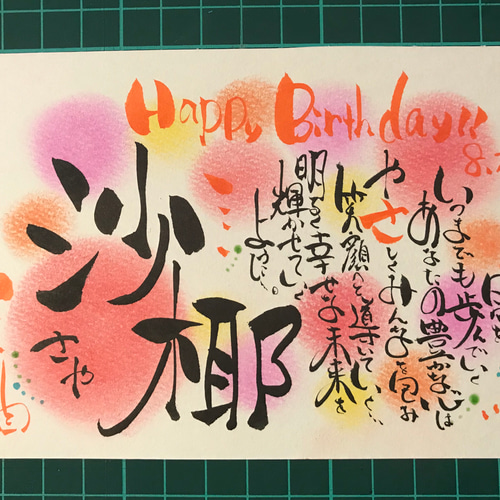 Happy Birthday!!
8.
いつまでも歩んでいく
あなたの豊かな心は
やさしくみんなを包み
笑顔へと導いていく…
明るく幸せな未来を
輝かせていく
ように…。
沙耶
さや